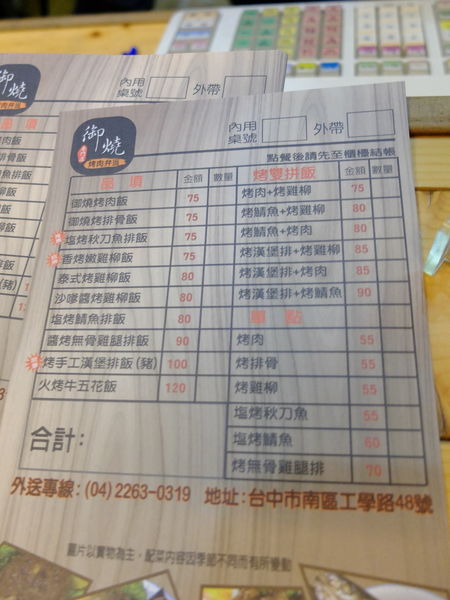 御燒
烤肉弁当
內用
桌號
外帶
點餐後請先至櫃檯結帳
品項 金額 數量
御燒烤肉飯 75
御燒烤排骨飯 75
塩烤秋刀魚排飯 75
香烤嫩雞柳飯 75
泰式烤雞柳飯 80
沙嗲醬烤雞柳飯 80
塩烤鯖魚排飯 80
醬烤無骨雞腿排飯 90
烤手工漢堡排飯(豬) 100
火烤牛五花飯 120
合計:
烤雙拼飯 金額 數量
烤肉+烤雞柳 75
烤鯖魚+烤雞柳 80
烤鯖魚+烤肉 80
烤漢堡排+烤雞柳 85
烤漢堡排+烤肉 85
烤漢堡排+烤鯖魚 90
單點
烤肉 55
烤排骨 55
烤雞柳 55
塩烤秋刀魚 55
塩烤鯖魚 60
烤無骨雞腿排 70
外送專線:(04)2263-0319 地址:台中市南區工學路48號
圖片以實物為主,配菜內容因季節不同而有所變動
御燒
內用
桌號
外帶